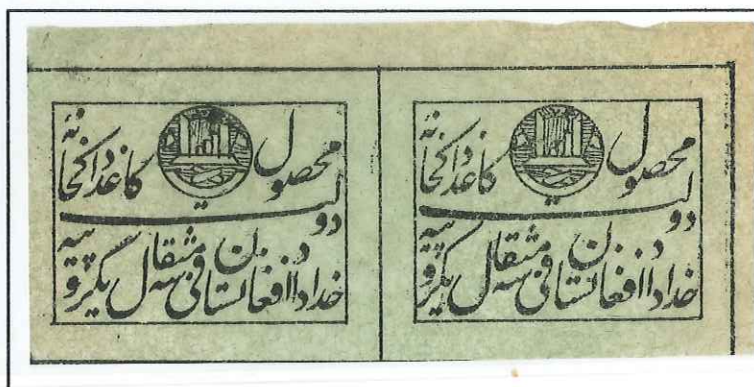 محصول کاغذ داکخانه
دولت
خداداد افغانستان فی سه مثقال یکروپیه
محصول کاغذ داکخانه
دولت
خداداد افغانستان فی سه مثقال یکروپیه